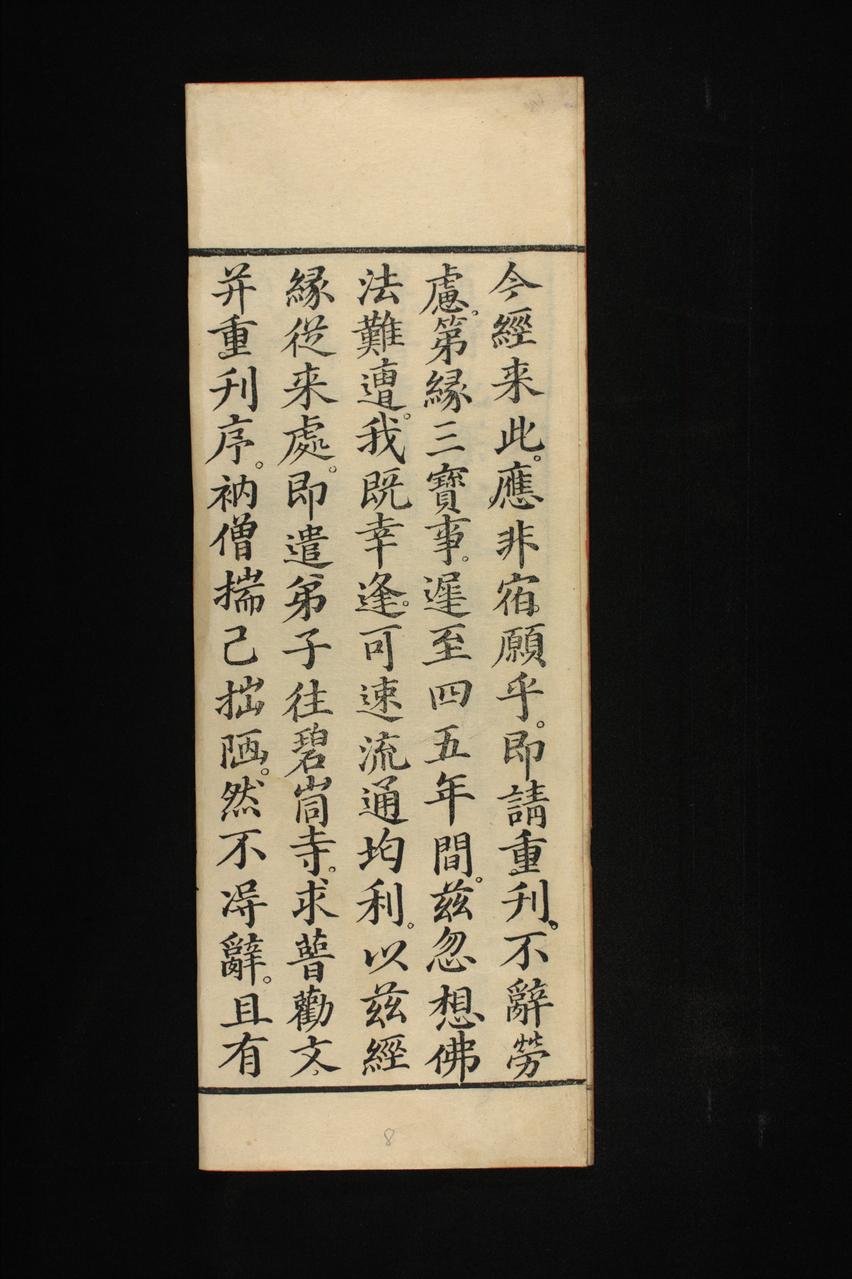 今經来此。應非宿。願乎。即請重刋。不辭勞
慮。第縁三寶事。遲至四五年間。兹忽想佛
法難遭。我既幸逢。可速流通均利。以兹經
縁従来處。即遣弟子往碧峝寺。求普勸文、
并重刋序。衲僧揣己拙陋。然不淂辭。且有
8